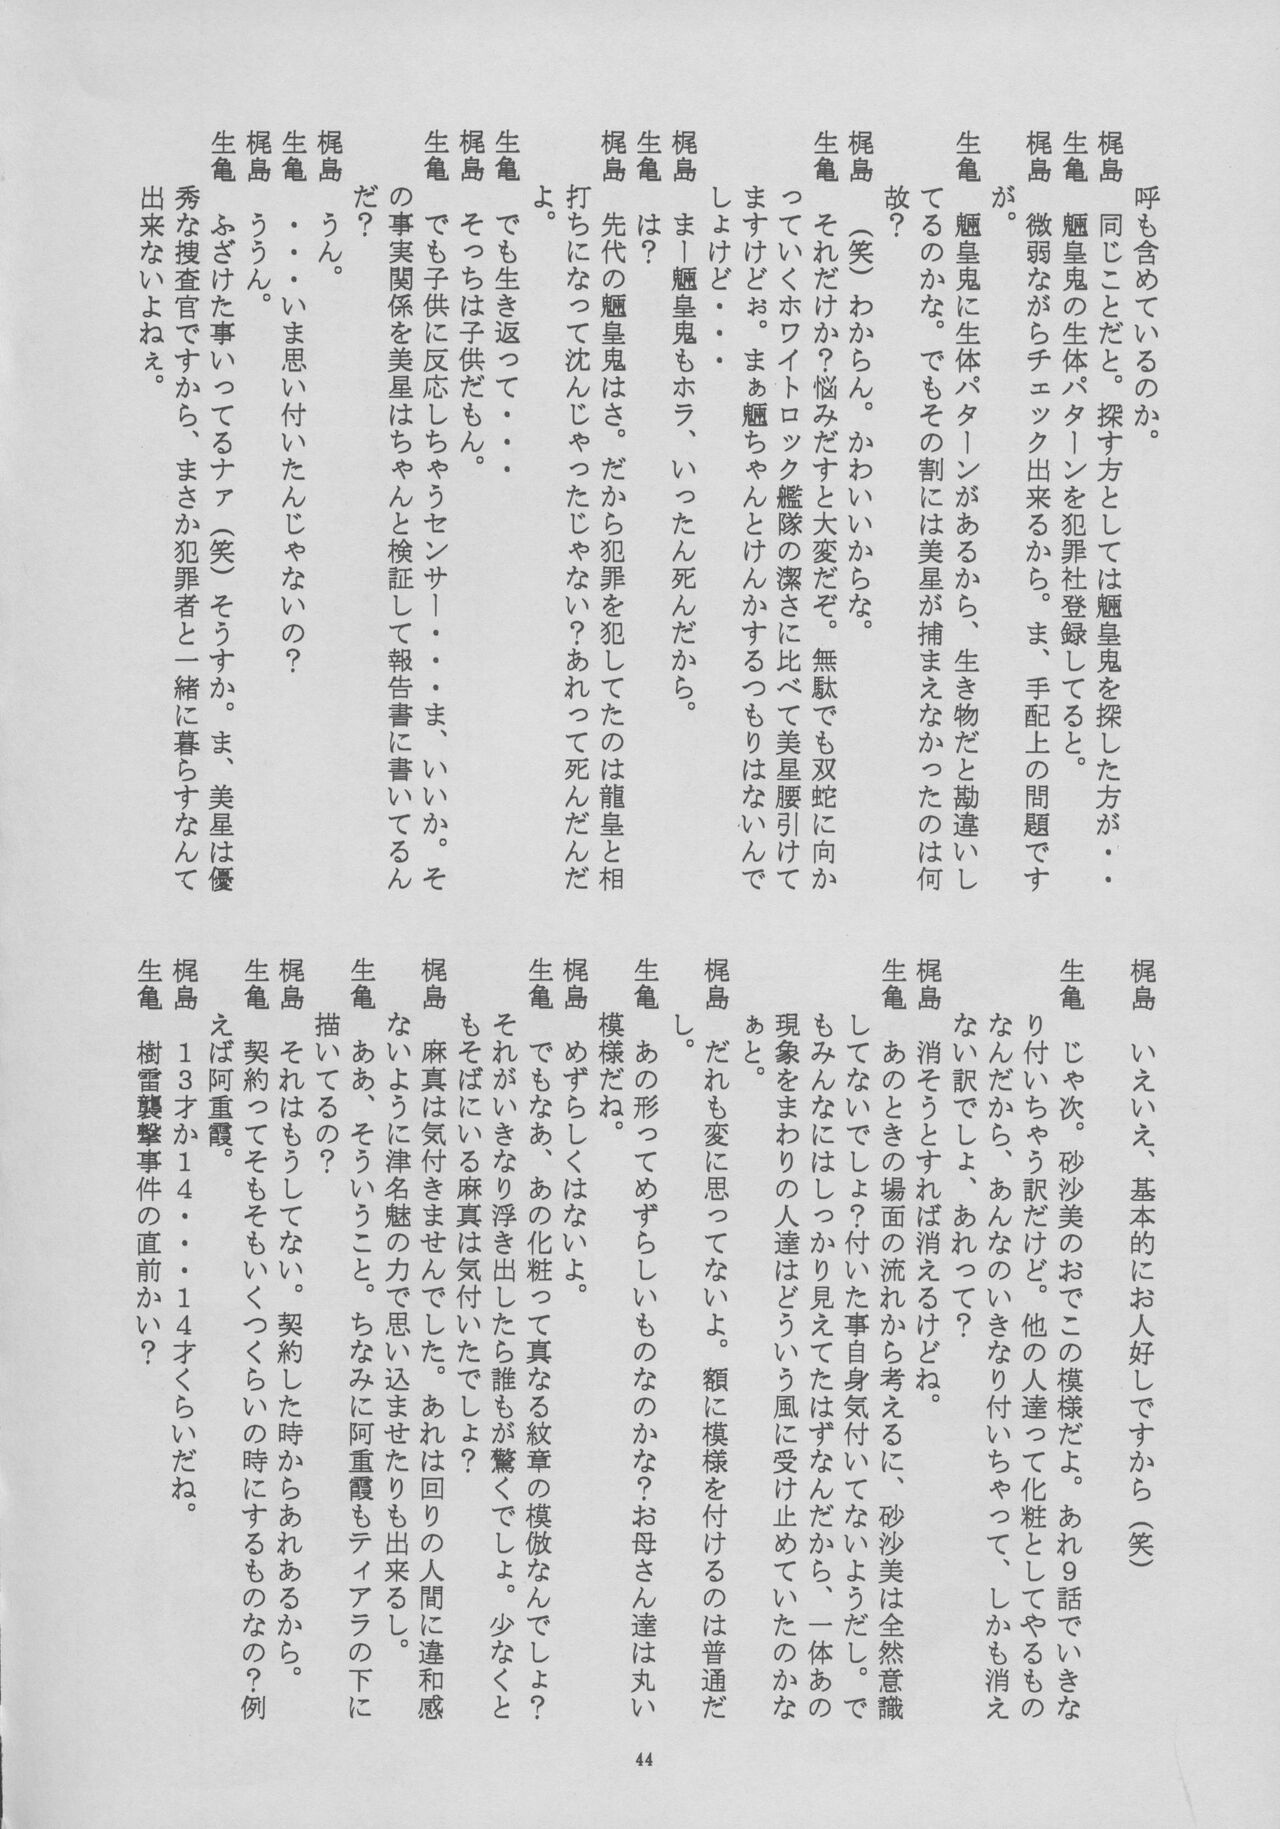 呼も含めているのか。
梶島　同じことだと。探す方としては魎皇鬼を探した方が・・
生亀　魎皇鬼の生体パターンを犯罪社登録してると。
梶島　微弱ながらチェック出来るから。ま、手配上の問題です
が。
生亀　魎皇鬼に生体パターンがあるから、生き物だと勘違いし
てるのかな。でもその割には美星が捕まえなかったのは何
故？
梶島　（笑）わからん。かわいいからな。
生亀　それだけか？悩みだすと大変だぞ。無駄でも双蛇に向か
っていくホワイトロック艦隊の潔さに比べて美星腰引けて
ますけどぉ。まぁ魎ちゃんとけんかするつもりはないんで
しょけど・・・
梶島　まー魎皇鬼もホラ、いったん死んだから。
生亀　は？
梶島　先代の魎皇鬼はさ。だから犯罪を犯してたのは龍皇と相
打ちになって沈んじゃったじゃない？あれって死んだんだ
よ。
生亀　でも生き返って・・・
梶島　そっちは子供だもん。
生亀　でも子供に反応しちゃうセンサー・・・ま、いいか。そ
の事実関係を美星はちゃんと検証して報告書に書いてるん
だ？
梶島　うん。
生亀　・・・いま思い付いたんじゃないの？
梶島　ううん。
生亀　ふざけた事いってるナァ（笑）そうすか。ま、美星は優
秀な捜査官ですから、まさか犯罪者と一緒に暮らすなんて
出来ないよねぇ。
梶島　いえいえ、基本的にお人好しですから（笑）
生亀　じゃ次。砂沙美のおでこの模様だよ。あれ９話でいきな
り付いちゃう訳だけど。他の人達って化粧としてやるもの
なんだから、あんなのいきなり付いちゃって、しかも消え
ない訳でしょ、あれって？
梶島　消そうとすれば消えるけどね。
生亀　あのときの場面の流れから考えるに、砂沙美は全然意識
してないでしょ？付いた事自身気付いてないようだし。で
もみんなにはしっかり見えてたはずなんだから、一体あの
現象をまわりの人達はどういう風に受け止めていたのかな
ぁと。
梶島　だれも変に思ってないよ。額に模様を付けるのは普通だ
し。
生亀　あの形ってめずらしいものなのかな？お母さん達は丸い
模様だね。
梶島　めずらしくはないよ。
生亀　でもなあ、あの化粧って真なる紋章の模倣なんでしょ？
それがいきなり浮き出したら誰もが驚くでしょ。少なくと
もそばにいる麻真は気付いたでしょ？
梶島　麻真は気付きませんでした。あれは回りの人間に違和感
ないように津名魅の力で思い込ませたりも出来るし。
生亀　ああ、そういうこと。ちなみに阿重霞もティアラの下に
描いてるの？
梶島　それはもうしてない。契約した時からあれあるから。
生亀　契約ってそもそもいくつくらいの時にするものなの？例
えば阿重霞。
梶島　１３才か１４・・・１４才くらいだね。
生亀　樹雷襲撃事件の直前かい？
44